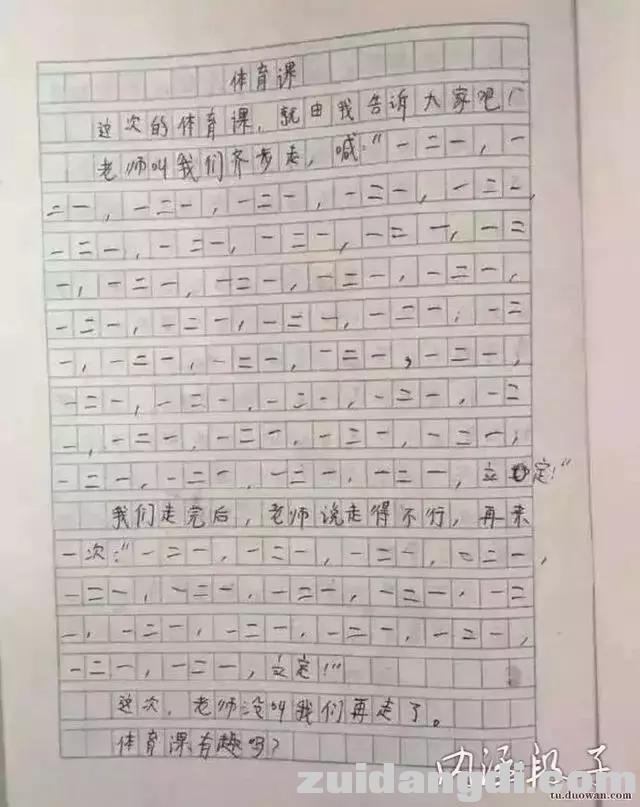 体育课
这次的体育课，就由我告诉大家吧！
老师叫我们齐步走，喊："一二一，一
二一，一二一，一二一，一二一，一二一，
一二一，一二一，一二一，一二一，一二
一，一二一，一二一，一二一，一二一，
一二一，一二一，一二一，一二一，一二
一，一二一，一二一，一二一，一二一，
一二一，一二一，一二一，一二一，一二
一，一二一，一二一，一二一，一二一，
一二一，一二一，一二一，一二一，立定！"
我们走完后，老师说走得不行，再来
一次："一二一，一二一，一二一，二二一，
一二一，一二一，一二一，一二一，一二
一，一二一，一二一，一二一，一二一，
一二一，一二一，立定！"
这次，老师没叫我们再走了。
体育课有趣吗？
内涵段子
zuidangdi.com
tu.duowan.com